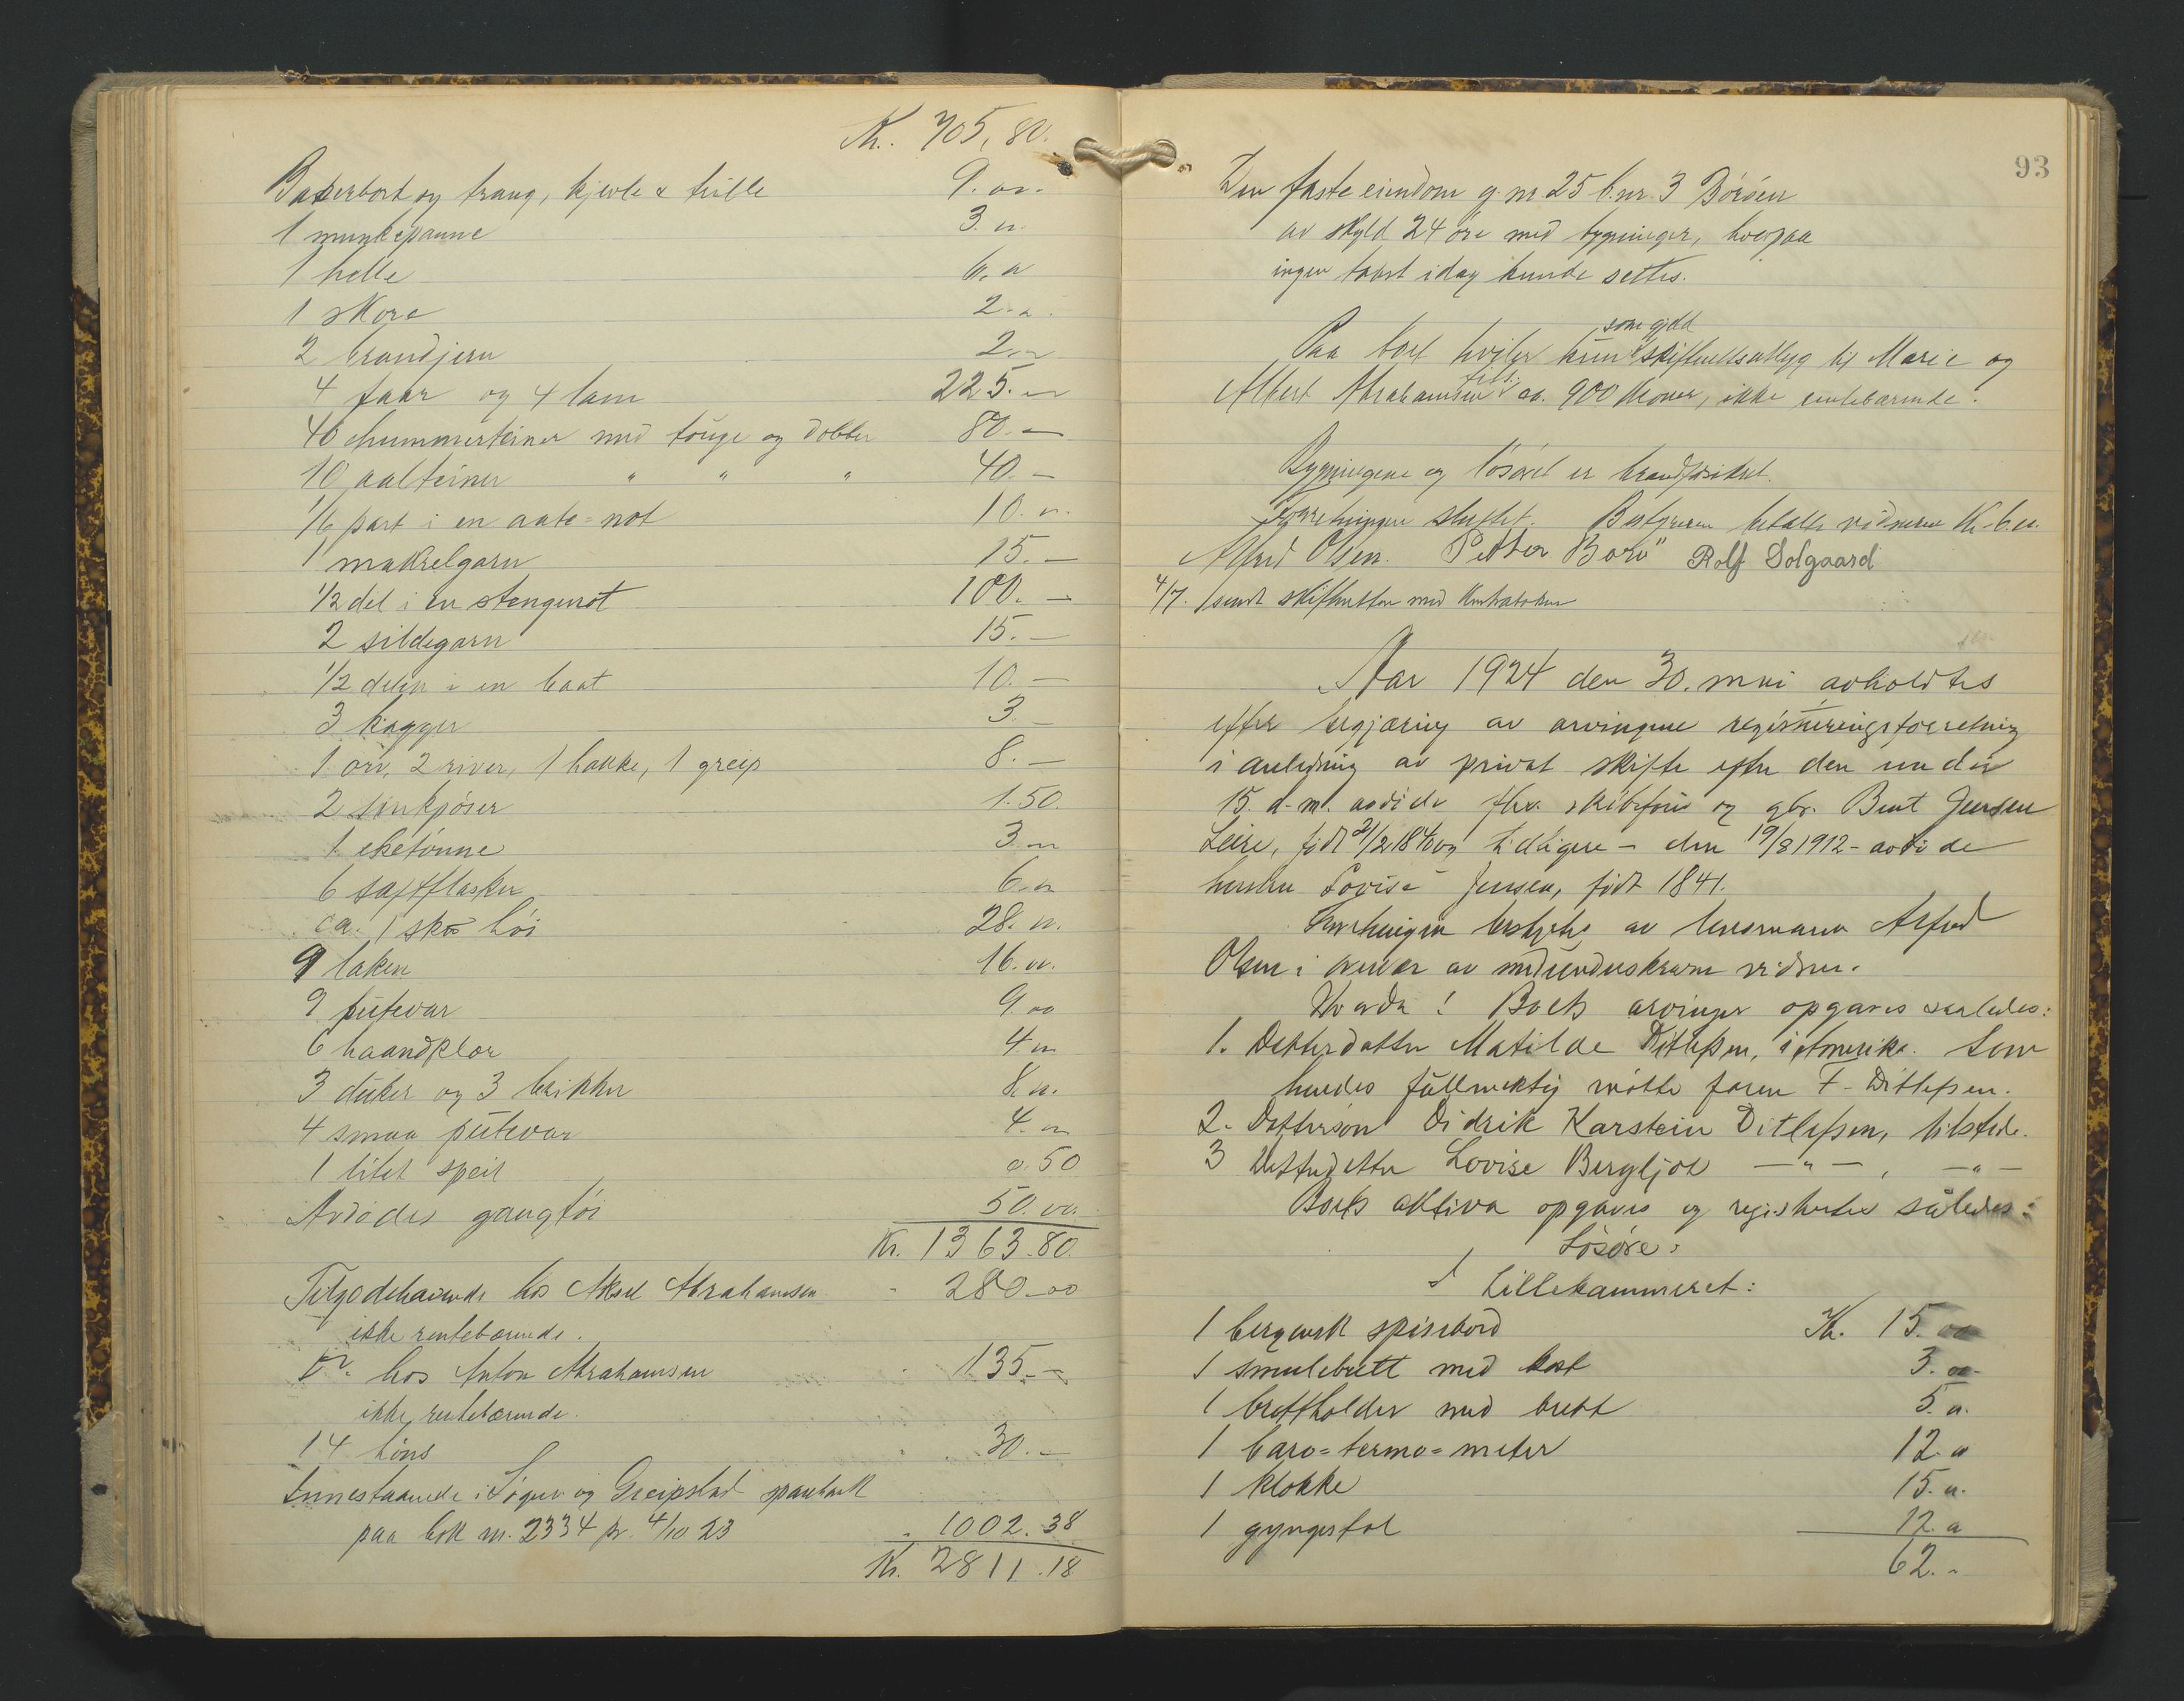 Kr. 705,80.
Bakerbord og traug, kjevle & fille 9.oo.
1 munkepanne 3.oo
1 helle 6.oo
1 skore 2.oo
2 brandjern 2.oo
4 faar og 4 lam 225.oo
40 hummerteiner med touge og dobber 80.—
10 aalteiner " " " 40.—
1/6 part i en aate=not 10.oo
1 makrelgarn 15.—
1/2 del i en stengenot 100.—
2 sildegarn 15.—
1/2 delen i en baat 10.—
3 kagger 3.—
1 orv, 2 river, 1 hakke, 1 greip 8.—
2 sinkpøser 1.50
1 eketønne 3.oo
6 saftflasker 6.oo
ca. 1 sk℔ høi 28.oo
9 laken 16.oo
9 putevar 9.oo
6 haandklær 4.oo
3 duker og 3 brikker 8.oo
4 smaa putevar 4.oo
1 litet speil 0.50
Avdødes gangtøi 50.oo
Kr. 1363.80
Tilgodehavende hos Aksel Abrahamsen - 280.oo
ikke rentebærende.
Do. hos Anton Abrahamsen - 135.—
ikke rentebærende.
14 høns - 30.—
Innestaaende i Søgne og Greipstad sparebank
paa bok nr. 2334 pr. 4/10 23 - 1002.38
Kr. 2811.18
93
Den faste eiendom g.nr 25 b.nr. 3 Borøen
av skyld 24 øre med bygninger, hvorpaa
ingen takst idag kunde settes.
som gjeld
Paa boet hviler kun skifteutlegg til Marie og
Albert Abrahamsen tils. ca. 900 kroner, ikke rentebærende.
Bygningene og løsøret er brandforsikret.
Forretningen sluttet. Bestyreren betalte vidnerne Kr. 6.oo.
Alfred Olsen. Petter Borø Rolf Solgaard
4/7. sendt skifteretten med
Aar 1924 den 30. mai avholdtes
efter begjæring av arvingene registreringsforretning
i anledning av privat skifte efter den under
15. d.m. avdøde fhv. skibsfører og gbr. Bent Jensen
Leire, født 21/2 1840 og tidligere - den 19/8 1912 - avdøde
hustru Lovise Jensen, født 1841.
Forretningen bestyrtes av lensmann Alfred
Olsen i nærvær av medunderskrevne vidner.
Hvorda! Boets arvinger opgaves saaledes:
1. Datterdatter Matilde Ditlefsen, i Amerika. Som
hendes fullmektig møtte faren F. Ditlefsen.
2. Dattersøn Didrik Karstein Ditlefsen, tilstede.
3 Datterdatter Lovise Bergljot — " — , — " —
Boets aktiva opgaves og registrertes således:
Løsøre:
I Lillekammeret:
1 bergensk spisebord Kr. 15.oo
1 smulebrett med kost 3.oo
1 brettholder med brett 5.oo
1 baro=termo=meter 12.oo
1 klokke 15.oo
1 gyngestol 12.oo
62.-